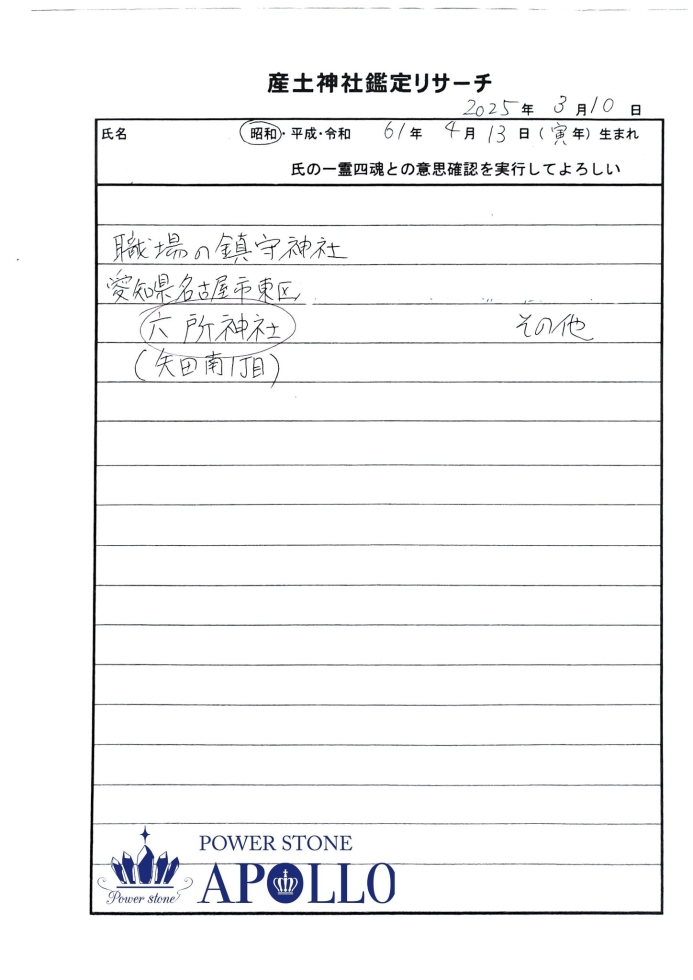 産土神社鑑定リサーチ
2025年 3月10日
氏名 昭和・平成・令和 61年 4月 13日(寅年)生まれ
氏の一霊四魂との意思確認を実行してよろしい
職場の鎮守神社
愛知県名古屋市東区
六所神社 その他
(矢田南1丁目)
POWER STONE
Power stone APOLLO